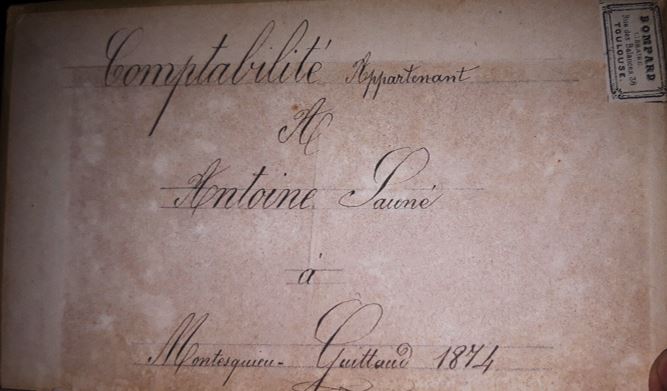 Comptabilité Appartenant
A
Antoine Sauné
à
Montesquieu - Guittaud 1874
BOMPARD
LIBRAIRE
Rue des Balances 38
TOULOUSE.